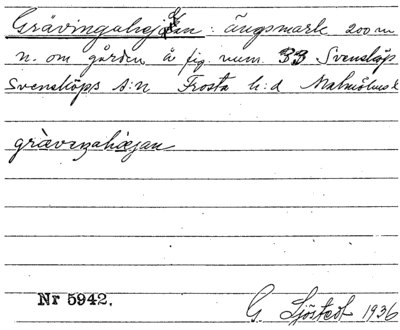 Grävingahejan : ängsmark 200 m
n. om gården å fig. num. 33 Svensköp
Svensköps s:n Frosta h:d Malmöhus l
gràvinahæjan
Nr 5942.
G. Sjöstedt 1936